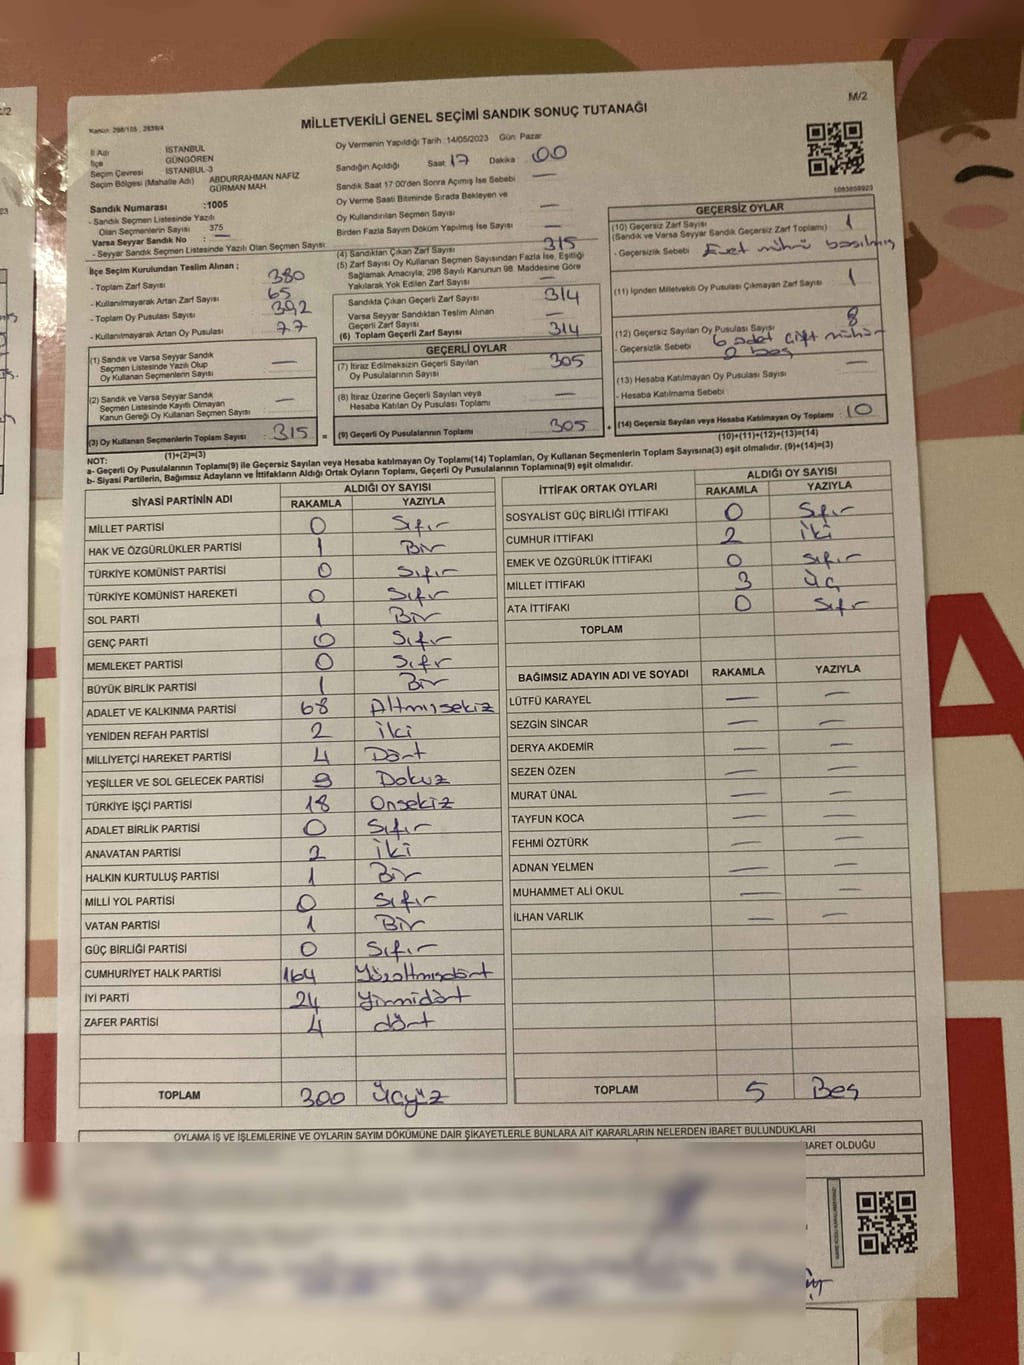 M/2
Kanun: 298/105, 2839/4
MİLLETVEKİLİ GENEL SEÇİMİ SANDIK SONUÇ TUTANAĞI
İl Adı : İSTANBUL
İlçe : GÜNGÖREN
Seçim Çevresi : İSTANBUL-3
Seçim Bölgesi (Mahalle Adı) : ABDURRAHMAN NAFİZ GÜRMAN MAH
Sandık Numarası :1005
- Sandık Seçmen Listesinde Yazılı
Olan Seçmenlerin Sayısı : 375
Varsa Seyyar Sandık No : —
- Seyyar Sandık Seçmen Listesinde Yazılı Olan Seçmen Sayısı:
İlçe Seçim Kurulundan Teslim Alınan ;
- Toplam Zarf Sayısı : 380
- Kullanılmayarak Artan Zarf Sayısı : 65
- Toplam Oy Pusulası Sayısı : 392
- Kullanılmayarak Artan Oy Pusulası : 77
(1) Sandık ve Varsa Seyyar Sandık
Seçmen Listesinde Yazılı Olup
Oy Kullanan Seçmenlerin Sayısı : —
(2) Sandık ve Varsa Seyyar Sandık
Seçmen Listesinde Kayıtlı Olmayan
Kanun Gereği Oy Kullanan Seçmen Sayısı : —
(3) Oy Kullanan Seçmenlerin Toplam Sayısı : 315 =
(1)+(2)=(3)
Oy Vermenin Yapıldığı Tarih : 14/05/2023 Gün: Pazar
Sandığın Açıldığı Saat 17 Dakika : 00
Sandık Saat 17:00'den Sonra Açmış İse Sebebi —
Oy Verme Saati Bitiminde Sırada Bekleyen ve
Oy Kullandırılan Seçmen Sayısı —
Birden Fazla Sayım Döküm Yapılmış İse Sayısı —
(4) Sandıktan Çıkan Zarf Sayısı 315
(5) Zarf Sayısı Oy Kullanan Seçmen Sayısından Fazla İse, Eşitliği
Sağlamak Amacıyla, 298 Sayılı Kanunun 98. Maddesine Göre
Yakılarak Yok Edilen Zarf Sayısı —
Sandıkta Çıkan Geçerli Zarf Sayısı 314
Varsa Seyyar Sandıktan Teslim Alınan
Geçerli Zarf Sayısı —
(6) Toplam Geçerli Zarf Sayısı 314
GEÇERLİ OYLAR
(7) İtiraz Edilmeksizin Geçerli Sayılan
Oy Pusulalarının Sayısı 305
(8) İtiraz Üzerine Geçerli Sayılan veya
Hesaba Katılan Oy Pusulası Toplamı —
(9) Geçerli Oy Pusulalarının Toplamı 305 +
1093859923
GEÇERSİZ OYLAR
(10) Geçersiz Zarf Sayısı
(Sandık ve Varsa Seyyar Sandık Geçersiz Zarf Toplamı) : 1
- Geçersizlik Sebebi : Evet mührü basılmış
(11) İçinden Milletvekili Oy Pusulası Çıkmayan Zarf Sayısı : 1
(12) Geçersiz Sayılan Oy Pusulası Sayısı : 8
- Geçersizlik Sebebi : 6 adet çift mühür
2 boş
(13) Hesaba Katılmayan Oy Pusulası Sayısı : —
- Hesaba Katılmama Sebebi
(14) Geçersiz Sayılan veya Hesaba Katılmayan Oy Toplamı : 10
(10)+(11)+(12)+(13)=(14)
NOT:
a- Geçerli Oy Pusulalarının Toplamı(9) ile Geçersiz Sayılan veya Hesaba katılmayan Oy Toplamı(14) Toplamları, Oy Kullanan Seçmenlerin Toplam Sayısına(3) eşit olmalıdır. (9)+(14)=(3)
b- Siyasi Partilerin, Bağımsız Adayların ve İttifakların Aldığı Ortak Oyların Toplamı, Geçerli Oy Pusulalarının Toplamına(9) eşit olmalıdır.
SİYASİ PARTİNİN ADI ALDIĞI OY SAYISI
RAKAMLA YAZIYLA
MİLLET PARTİSİ 0 Sıfır
HAK VE ÖZGÜRLÜKLER PARTİSİ 1 Bir
TÜRKİYE KOMÜNİST PARTİSİ 0 Sıfır
TÜRKİYE KOMÜNİST HAREKETİ 0 Sıfır
SOL PARTİ 1 Bir
GENÇ PARTİ 0 Sıfır
MEMLEKET PARTİSİ 0 Sıfır
BÜYÜK BİRLİK PARTİSİ 1 Bir
ADALET VE KALKINMA PARTİSİ 68 Altmışsekiz
YENİDEN REFAH PARTİSİ 2 İki
MİLLİYETÇİ HAREKET PARTİSİ 4 Dört
YEŞİLLER VE SOL GELECEK PARTİSİ 9 Dokuz
TÜRKİYE İŞÇİ PARTİSİ 18 Onsekiz
ADALET BİRLİK PARTİSİ 0 Sıfır
ANAVATAN PARTİSİ 2 İki
HALKIN KURTULUŞ PARTİSİ 1 Bir
MİLLİ YOL PARTİSİ 0 Sıfır
VATAN PARTİSİ 1 Bir
GÜÇ BİRLİĞİ PARTİSİ 0 Sıfır
CUMHURİYET HALK PARTİSİ 164 Yüzaltmışdört
İYİ PARTİ 24 Yirmidört
ZAFER PARTİSİ 4 dört
TOPLAM 300 Üçyüz
İTTİFAK ORTAK OYLARI ALDIĞI OY SAYISI
RAKAMLA YAZIYLA
SOSYALİST GÜÇ BİRLİĞİ İTTİFAKI 0 Sıfır
CUMHUR İTTİFAKI 2 İki
EMEK VE ÖZGÜRLÜK İTTİFAKI 0 Sıfır
MİLLET İTTİFAKI 3 Üç
ATA İTTİFAKI 0 Sıfır
TOPLAM
BAĞIMSIZ ADAYIN ADI VE SOYADI RAKAMLA YAZIYLA
LÜTFÜ KARAYEL — —
SEZGİN SİNCAR — —
DERYA AKDEMİR — —
SEZEN ÖZEN — —
MURAT ÜNAL — —
TAYFUN KOCA — —
FEHMİ ÖZTÜRK — —
ADNAN YELMEN — —
MUHAMMET ALİ OKUL — —
İLHAN VARLIK — —
TOPLAM 5 Beş
OYLAMA İŞ VE İŞLEMLERİNE VE OYLARIN SAYIM DÖKÜMÜNE DAİR ŞİKAYETLERLE BUNLARA AİT KARARLARIN NELERDEN İBARET BULUNDUKLARI
İBARET OLDUĞU